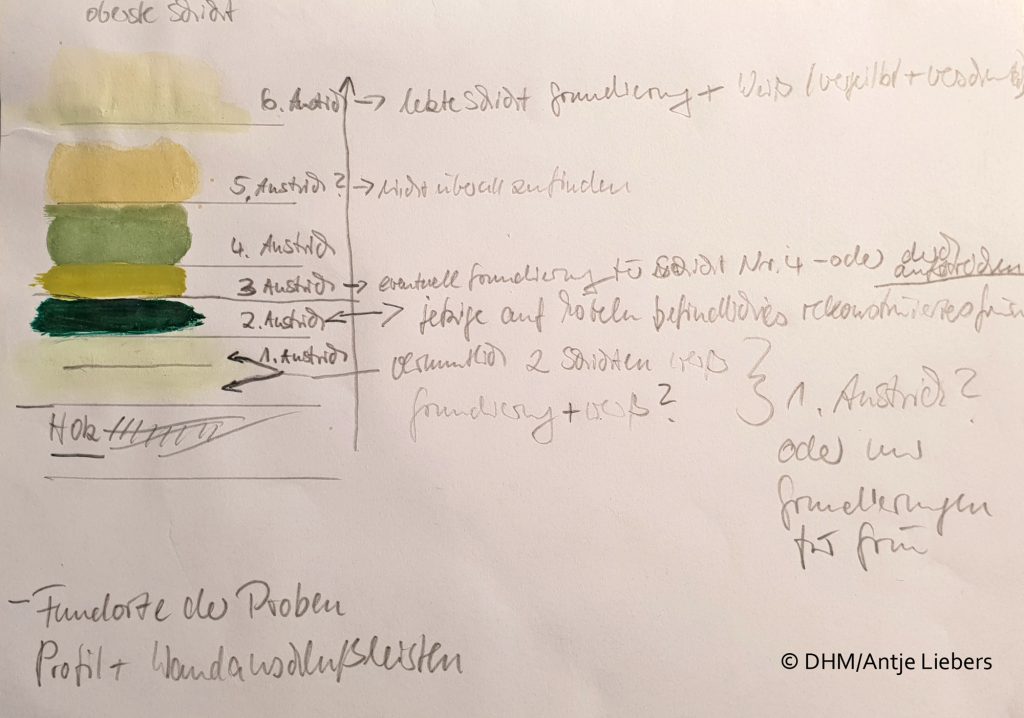 oberste Schicht
6. Anstrich → letzte Schicht Grundierung + Weiß (vergilbt +
5. Anstrich? → nicht überall zufinden
4. Anstrich
3 Anstrich → eventuell Grundierung für Schicht Nr. 4 - oder
2. Anstrich jetzige auf Möbeln befindliches rekonstruiertes grün
1. Anstrich vermutlich 2 Schichten weiß
Grundierung + weiß?
1. Anstrich?
oder nur
Grundierungen
für Grün
Holz
- Fundorte der Proben
Profil + Wandanschlußleisten
© DHM/Antje Liebers